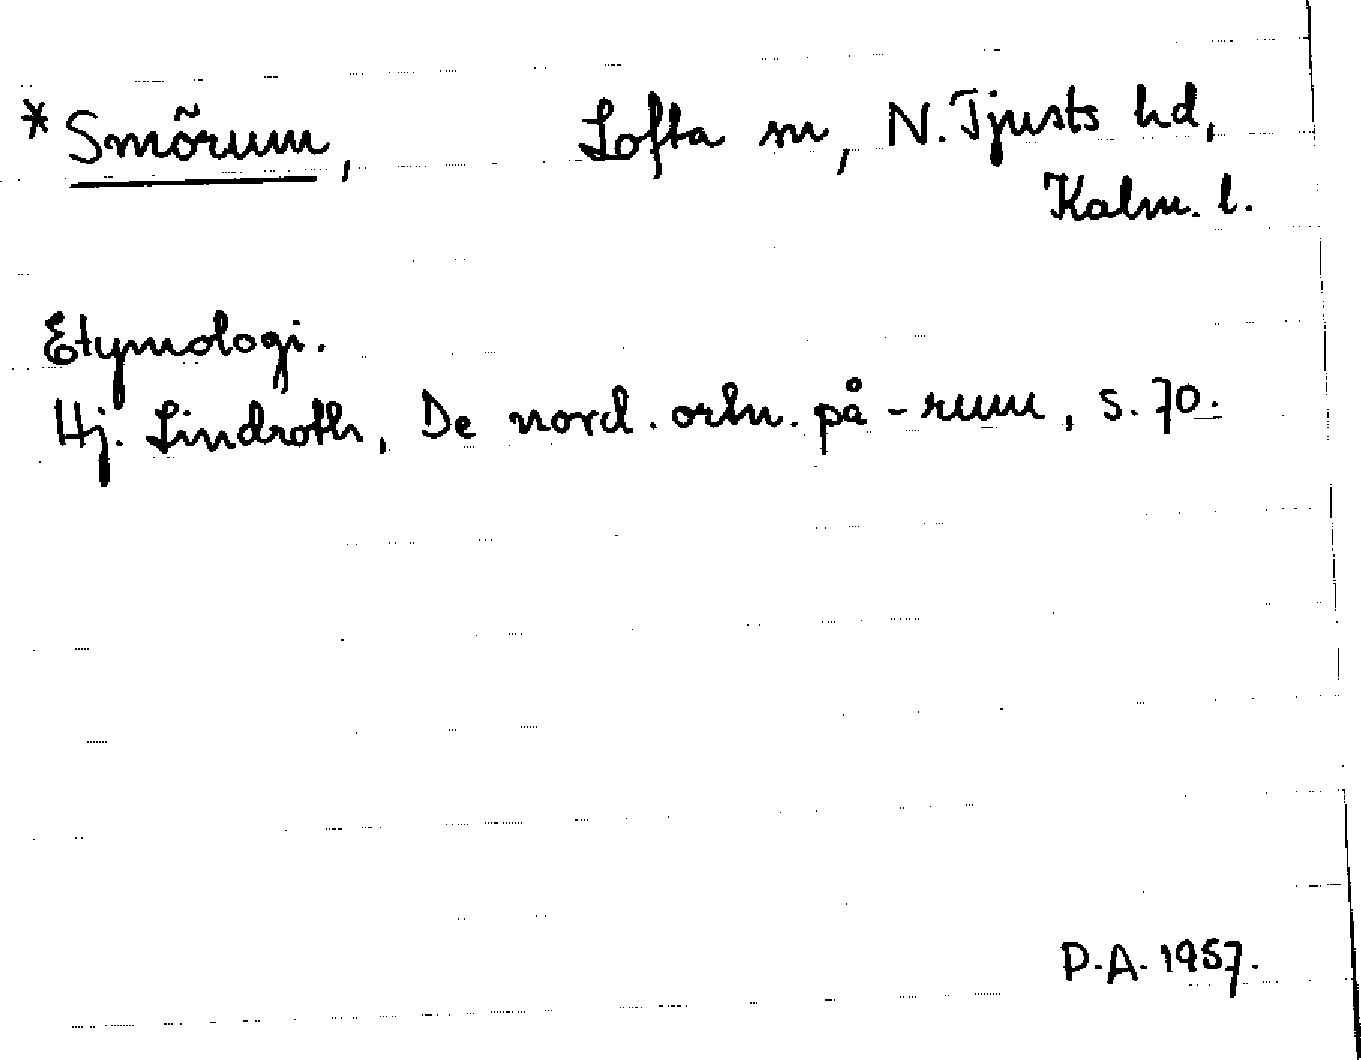 *Smörum, Lofta sn, N. Tjusts hd,
Kalm. l.
Etymologi.
Hj. Lindroth, De nord. ortn. på -rum, s. 70.
D.A. 1957.